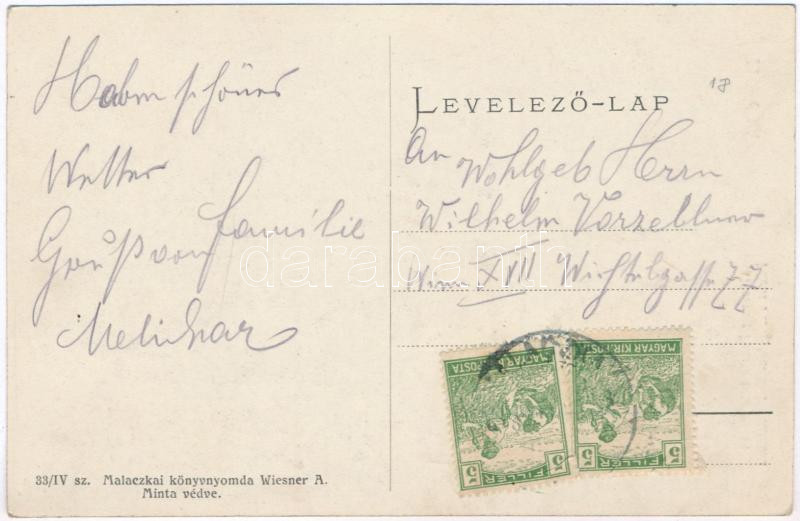 Habm schönes
Wetter
Gruß von Familie
Melichar
33/IV sz. Malaczkai könyvnyomda Wiesner A.
Minta védve.
18
LEVELEZŐ-LAP
An Wohlgeb Herrn
Wilhelm
Wien XVII Wichtelgasse 77
MAGYAR KIR. POSTA
5 FILLÉR 5
MAGYAR KIR. POSTA
5 FILLÉR 5
darabanth